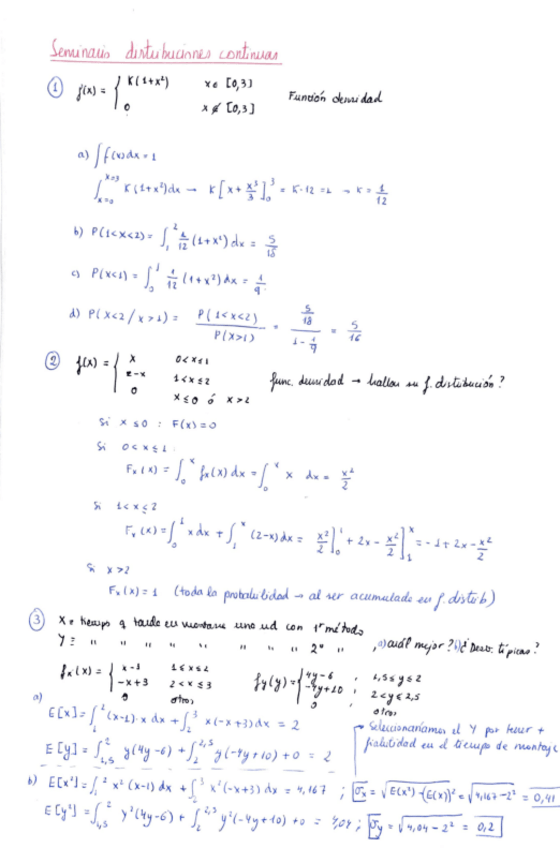 Seminario distribuciones continuas
① f(x) = { K(1+x²) x ∈ [0,3]
0 x ∉ [0,3]
Función densidad
a) ∫ f(x) dx = 1
∫ₓ₌₀ˣ⁼³ K(1+x²) dx → K[x + x³/3]₀³ = K·12 = 1 → K = 1/12
b) P(1<x<2) = ∫₁² 1/12 (1+x²) dx = 5/18
c) P(x<1) = ∫₀¹ 1/12 (1+x²) dx = 1/9
d) P(x<2 / x>1) = P(1<x<2) / P(x>1) = (5/18) / (1 - 1/9) = 5/16
② f(x) = { x 0<x≤1
2-x 1<x≤2
0 x≤0 ó x>2
func. densidad → hallar su f. distribución?
Si x ≤ 0 : F(x) = 0
Si 0 < x ≤ 1 :
Fₓ(x) = ∫₀ˣ fₓ(x) dx = ∫₀ˣ x dx = x²/2
Si 1 < x ≤ 2
Fₓ(x) = ∫₀¹ x dx + ∫₁ˣ (2-x) dx = x²/2]₀¹ + 2x - x²/2]₁ˣ = -1 + 2x - x²/2
Si x > 2
Fₓ(x) = 1 (toda la probabilidad → al ser acumulado en f. distrib)
③ X = tiempo q tarda en montarse una ud con 1º método
Y = " " " " " " " " 2º " , a) cuál mejor? b) ¿Desv. típicas?
fₓ(x) = { x-1 1≤x≤2
-x+3 2<x≤3
0 otros
fy(y) = { 4y-6 , 1,5≤y≤2
-4y+10 , 2<y≤2,5
0 , otros
a)
E[x] = ∫₁² (x-1)·x dx + ∫₂³ x(-x+3) dx = 2
E[y] = ∫₁,₅² y(4y-6) + ∫₂²'⁵ y(-4y+10) + 0 = 2
→ Seleccionaríamos el Y por tener +
fiabilidad en el tiempo de montaje
b) E[x²] = ∫₁² x²(x-1) dx + ∫₂³ x²(-x+3) dx = 4,167 ; σₓ = √E(x²)-(E(x))² = √4,167-2² = 0,41
E[y²] = ∫₁,₅² y²(4y-6) + ∫₂²'⁵ y²(-4y+10) + 0 = 4,04 ; σy = √4,04-2² = 0,2